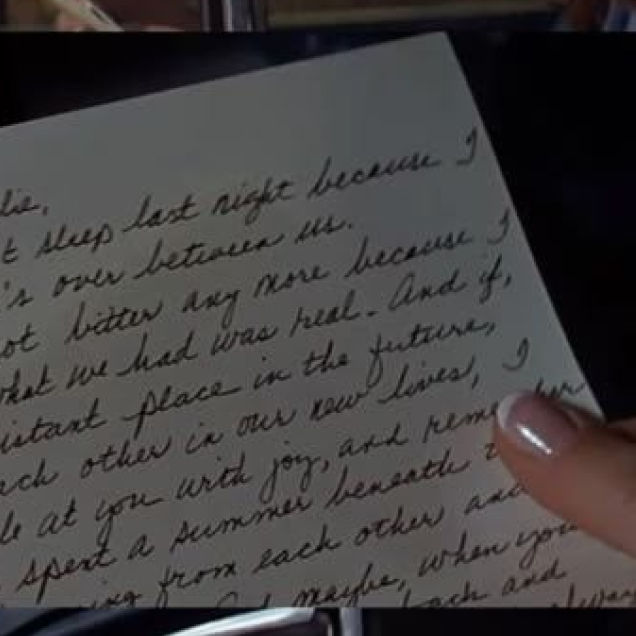 lie,
t sleep last night because I
's over between us.
ot bitter any more because I
what we had was real. And if,
istant place in the future,
ach other in our new lives, I
le at you with joy, and remember
spent a summer beneath
ing from each other and
maybe, when you
back and